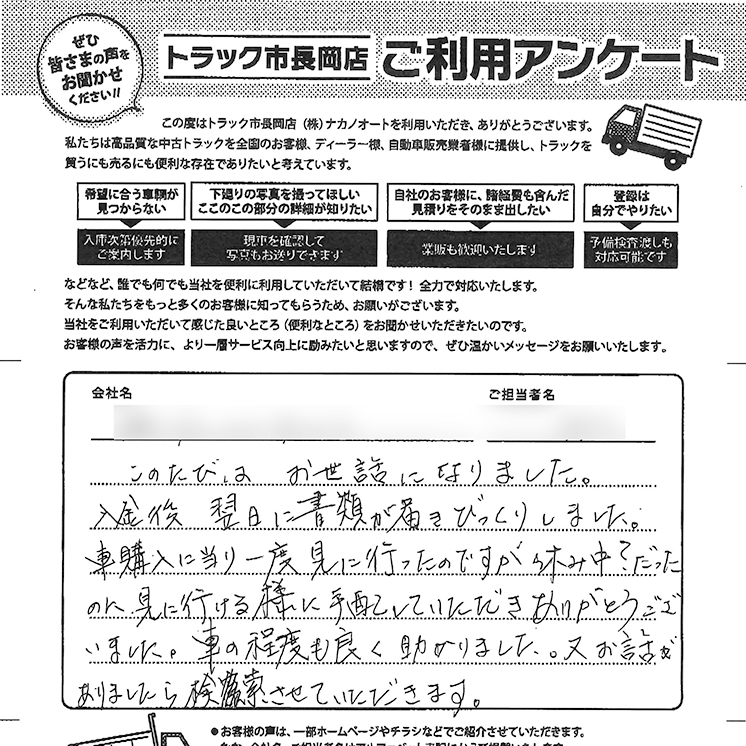 ぜひ
皆さまの声を
お聞かせ
ください!!
トラック市長岡店
ご利用アンケート
この度はトラック市長岡店（株）ナカノオートを利用いただき、ありがとうございます。
私たちは高品質な中古トラックを全国のお客様、ディーラー様、自動車販売業者様に提供し、トラックを
買うにも売るにも便利な存在でありたいと考えています。
希望に合う車輌が
見つからない
入庫次第優先的に
ご案内します
下廻りの写真を撮ってほしい
ここのこの部分の詳細が知りたい
現車を確認して
写真もお送りできます
自社のお客様に、諸経費も含んだ
見積りをそのまま出したい
業販も歓迎いたします
登録は
自分でやりたい
予備検査渡しも
対応可能です
などなど、誰でも何でも当社を便利に利用していただいて結構です！全力で対応いたします。
そんな私たちをもっと多くのお客様に知ってもらうため、お願いがございます。
当社をご利用いただいて感じた良いところ（便利なところ）をお聞かせいただきたいのです。
お客様の声を活力に、より一層サービス向上に励みたいと思いますので、ぜひ温かいメッセージをお願いいたします。
会社名
ご担当者名
このたびは お世話になりました。
入金後 翌日に書類が届きびっくりしました。
車購入に当り一度見に行ったのですが休み中?だった
のに見に行ける様に手配していただきありがとうござ
いました。車の程度も良く助かりました。又お話が
ありましたら検索させていただきます。
●お客様の声は、一部ホームページやチラシなどでご紹介させていただきます。